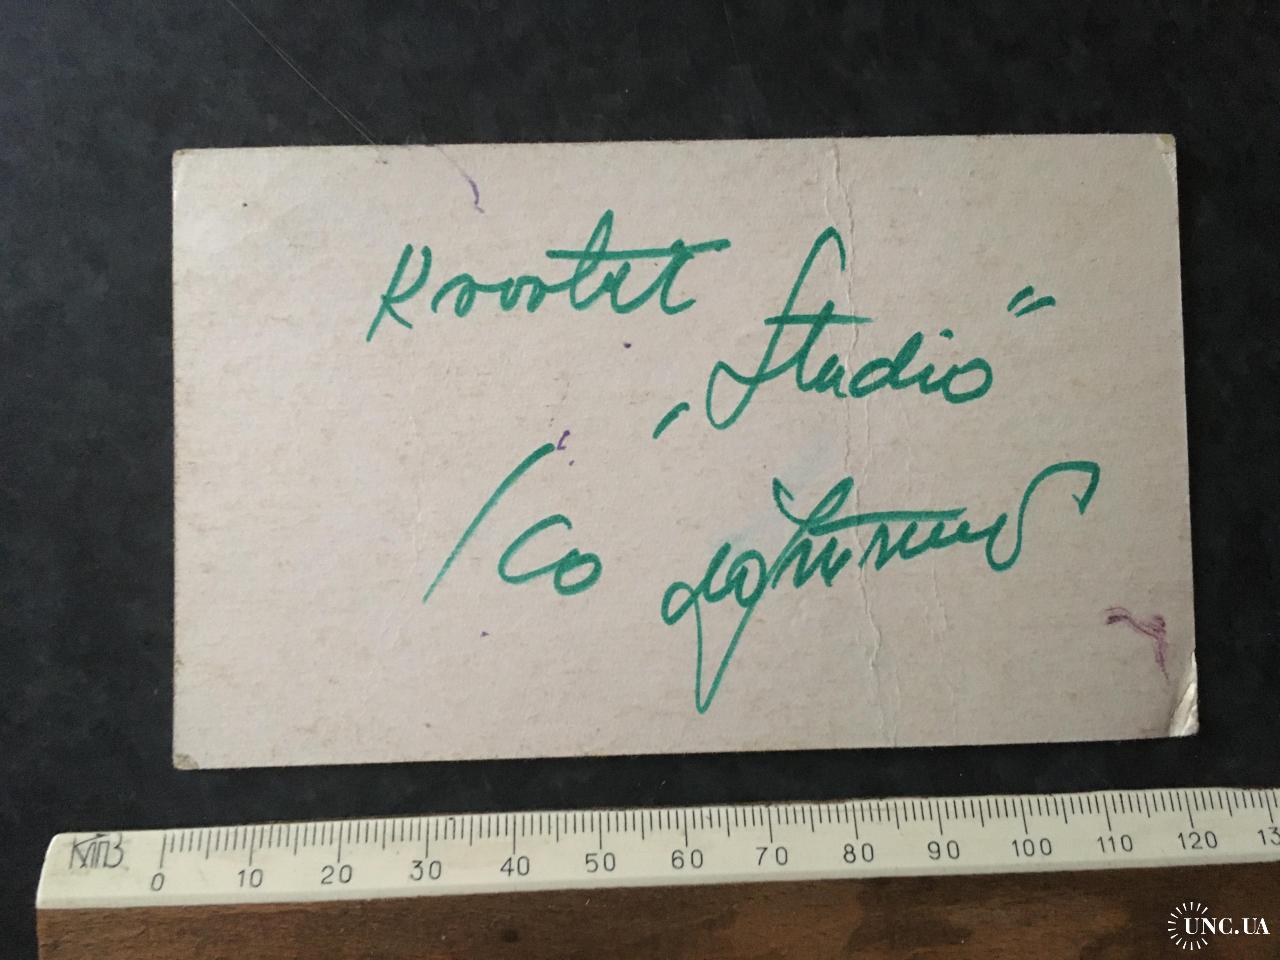 Kvartet
„Studio"
/Co
КПВ
0 10 20 30 40 50 60 70 80 90 100 110 120 13
UNC.UA